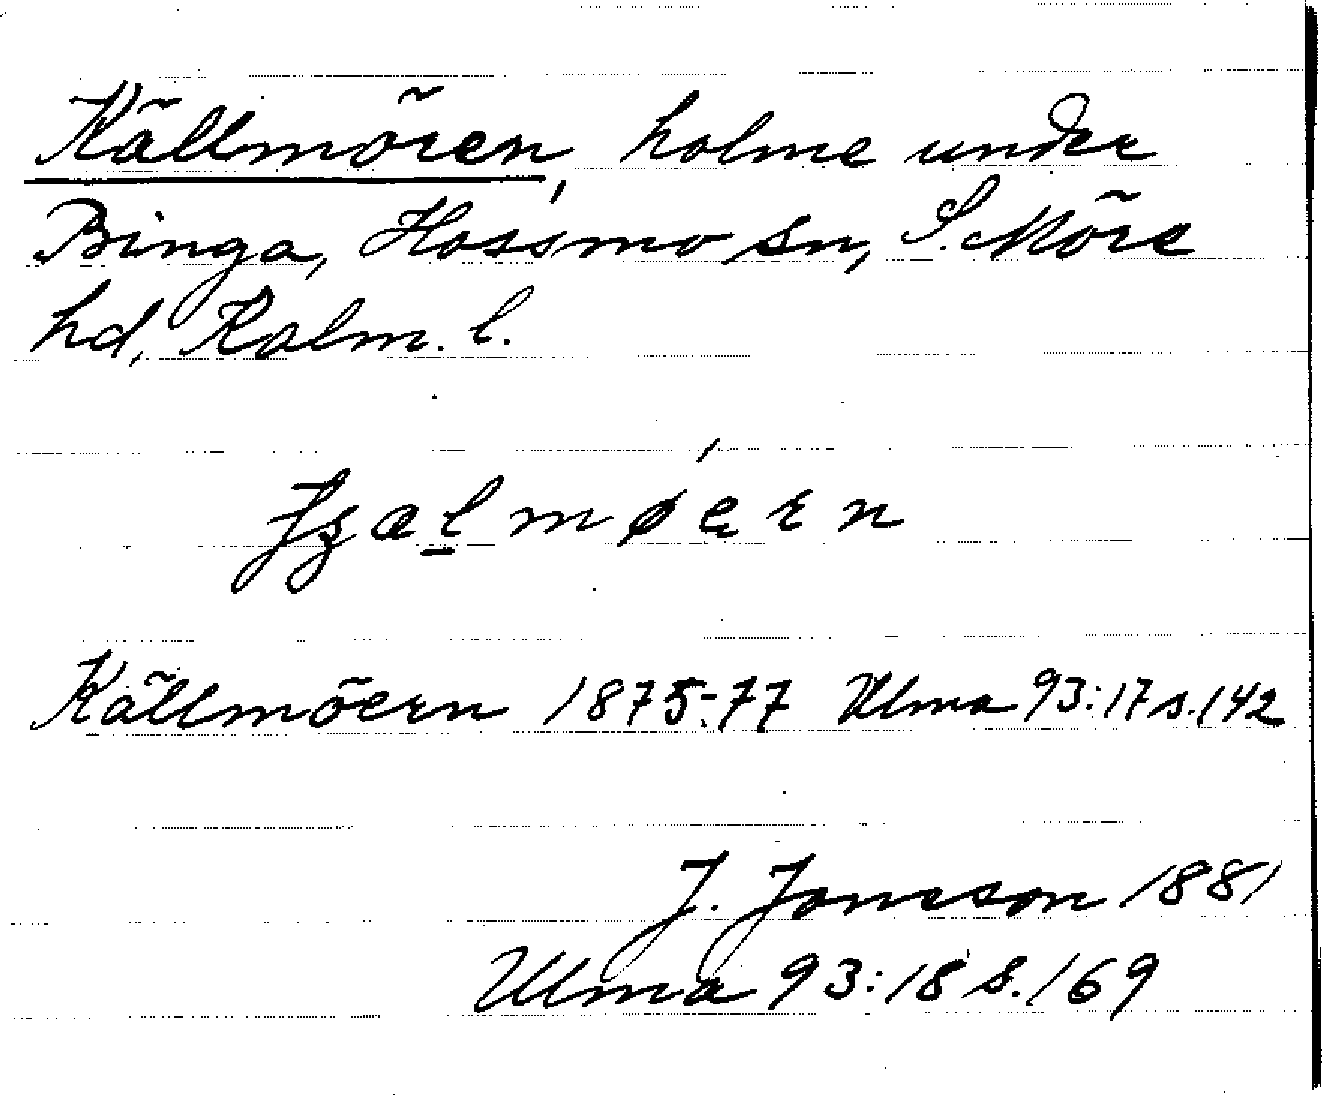 Källmören, holme under
Binga, Hossmo sn, S. Möre
hd, Kalm. l.
Källmöern 1875-77 Ulma 93:17 s. 142
J. Jonsson 1881
Ulma 93:18 s. 169